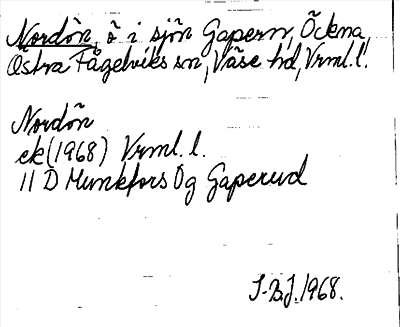 Nordön, ö i sjön Gapern, Öckna,
Östra Fågelviks sn, Väse hd, Vrml. l.
Nordön
ek (1968) Vrml. l.
11 D Munkfors Og Gaperud
I-B.J. 1968.